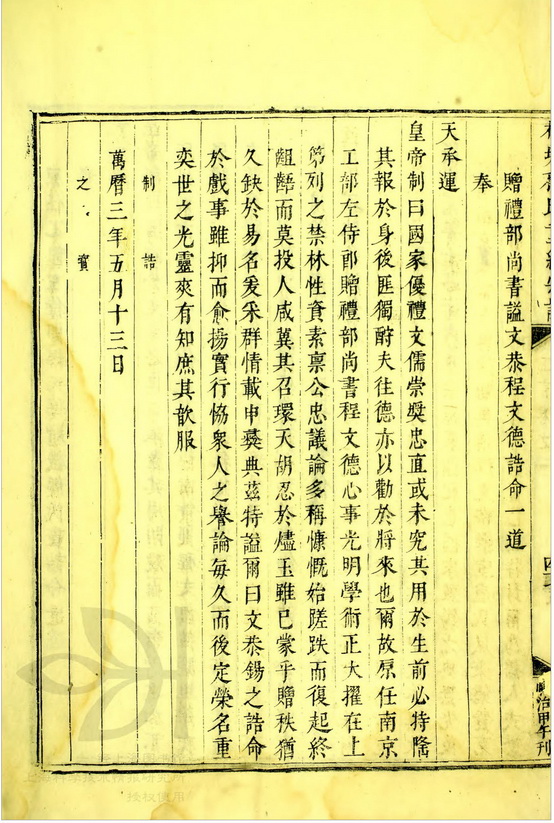 贈禮部尚書謚文恭程文德誥命一道
奉
天承運
皇帝制曰國家優禮文儒崇奬忠直或未究其用於生前必特隆
其報於身後匪獨酧夫往德亦以勸於將來也爾故原任南京
工部左侍郎贈禮部尚書程文德心事光明學術正大擢在上
第列之禁林性資素禀公忠議論多稱慷慨始蹉跌而復起終
齟齬而莫投人咸冀其召環天胡忍於燼玉雖已蒙乎贈秩猶
久缺於易名爰采群情載申彞典茲特謚爾曰文恭錫之誥命
於戲事雖抑而愈揚實行恊衆人之譽論毎久而後定榮名重
奕世之光靈爽有知庶其歆服
制誥
萬曆三年五月十三日
之寳
治甲午刊
授权使用